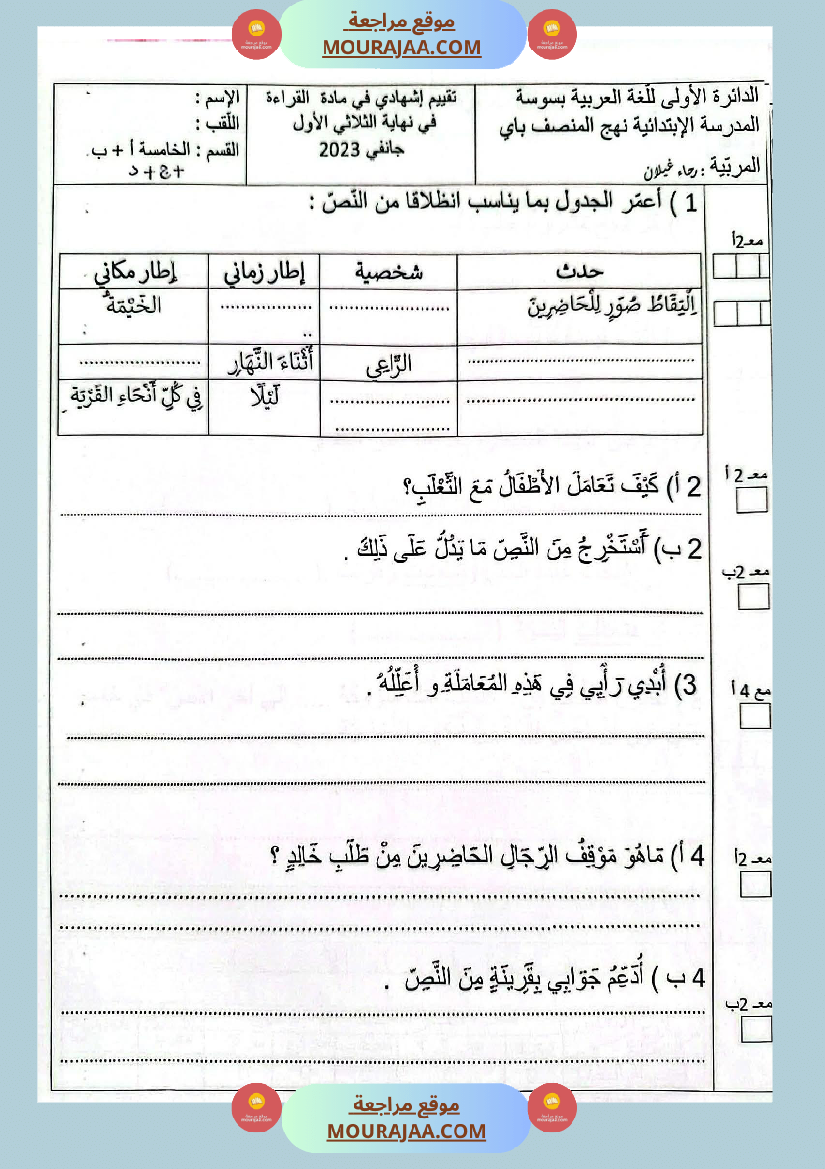 موقع مراجعة
MOURAJAA.COM
الدائرة الأولى للّغة العربية بسوسة
المدرسة الإبتدائية نهج المنصف باي
المربّية : رجاء غيلان
تقييم إشهادي في مادة القراءة
في نهاية الثلاثي الأول
جانفي 2023
الإسم :
اللّقب :
القسم : الخامسة أ + ب
+ ج + د
1 ) أعمّر الجدول بما يناسب انطلاقا من النّصّ :
معـ2أ
حدث شخصية إطار زماني إطار مكاني
اِلْتِقَاطُ صُوَرٍ لِلْحَاضِرِينَ ........................ .................... الخَيْمَةُ
..
........................ الرَّاعِي أَثْنَاءَ النَّهَارِ ........................
........................ ........................ لَيْلًا فِي كُلِّ أَنْحَاءِ القَرْيَة
........................
2 أ) كَيْفَ تَعَامَلَ الأَطْفَالُ مَعَ الثَّعْلَبِ؟
معـ 2 أ
2 ب) أَسْتَخْرِجُ مِنَ النَّصِّ مَا يَدُلُّ عَلَى ذَلِكَ .
معـ 2ب
3) أُبْدِي رَأْيِي فِي هَذِهِ المُعَامَلَةِ و أُعَلِّلُهُ .
مع 4 أ
4 أ) مَاهُوَ مَوْقِفُ الرِّجَالِ الحَاضِرِينَ مِنْ طَلَبِ خَالِدٍ ؟
معـ 2أ
4 ب ) أُدَعِّمُ جَوَابِي بِقَرِينَةٍ مِنَ النَّصِّ .
معـ 2ب
موقع مراجعة
MOURAJAA.COM